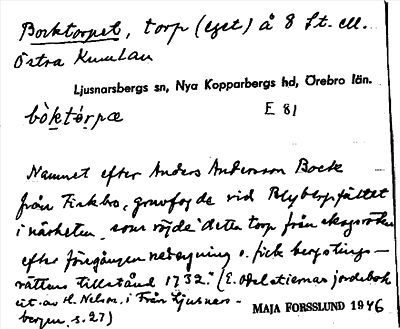 Bocktorpet, torp (eget) å 8 St. ell.
Östra Kumlan
Ljusnarsbergs sn, Nya Kopparbergs hd, Örebro län.
bòktòrpæ E 81
Namnet efter Anders Andersson Bock
från Finkbo, gruvfogde vid Blybergsfältet
i närheten, som röjde "detta torp från skogsröten
efter föregången nedsyning o. fick bergstings-
rättens tillstånd 1732." (E. Odelstiernas jordebok
cit. av H. Nelson, i Från Ljusnars-
bergen, s. 27) MAJA FORSSLUND 1946